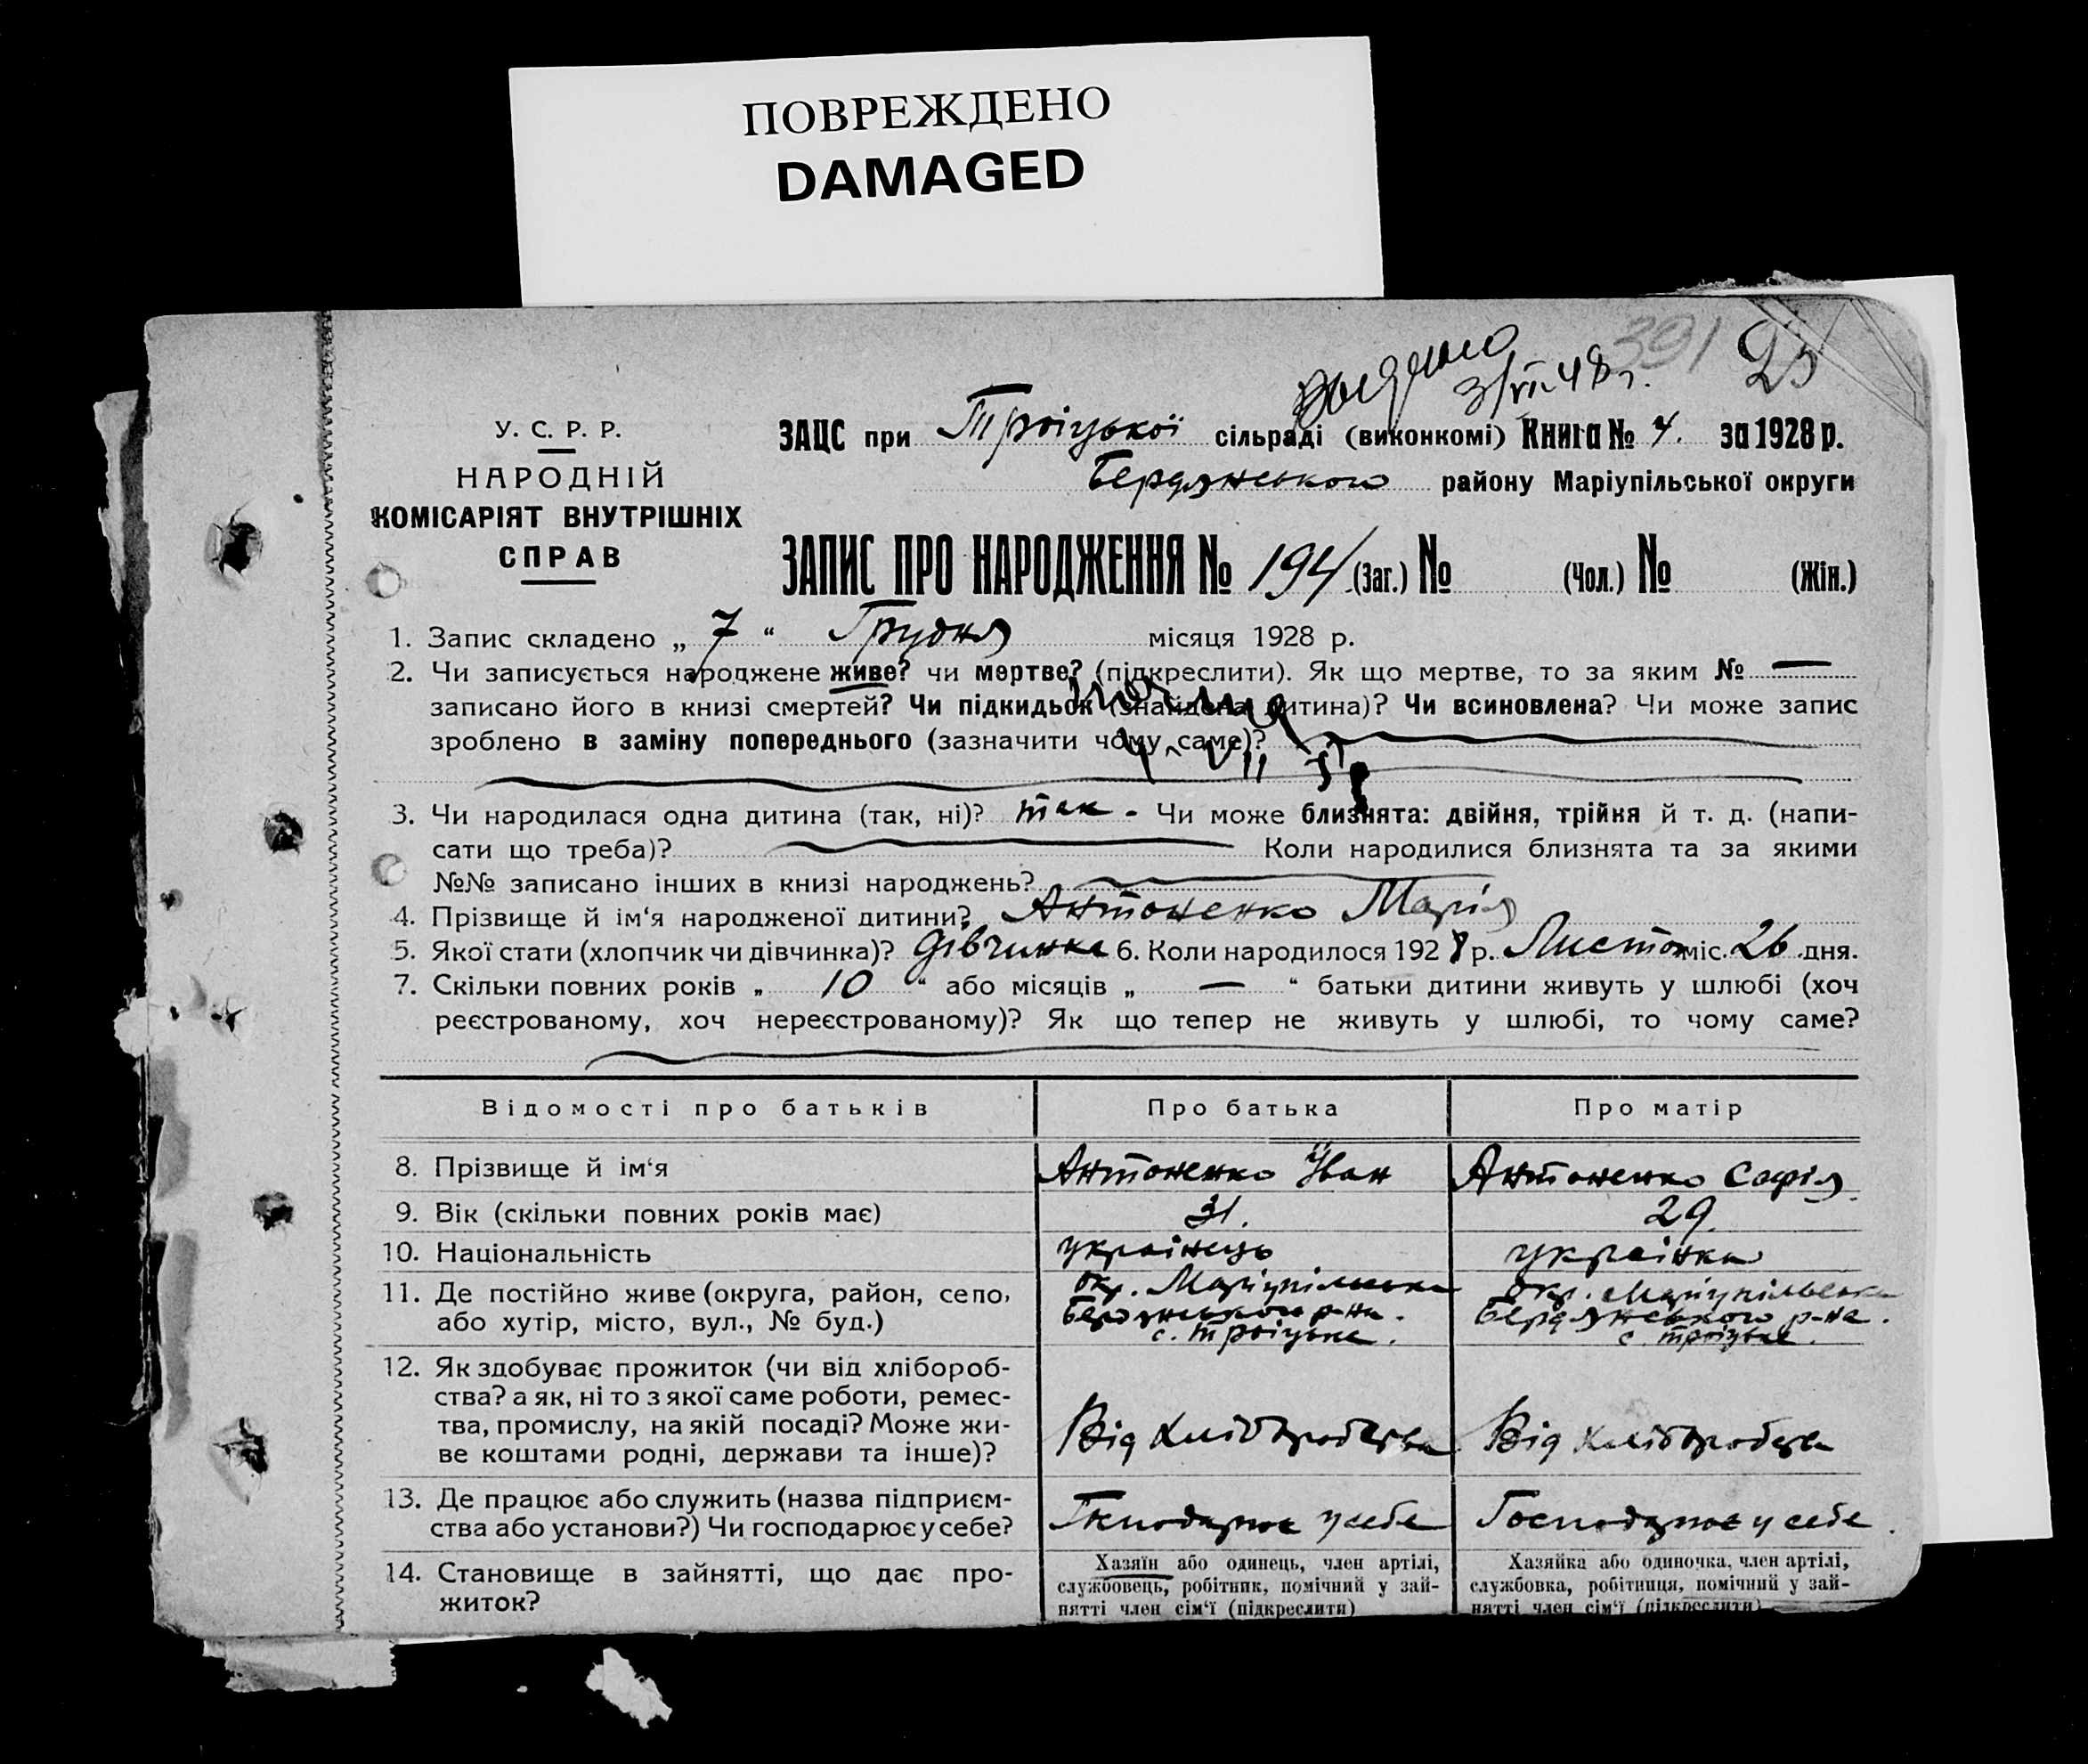 ПОВРЕЖДЕНО
DAMAGED
391 25
видано
3/VII 48 г.
У. С. Р. Р.
НАРОДНІЙ
КОМІСАРІЯТ ВНУТРІШНІХ
СПРАВ
ЗАЦС при Троіцькоі сільраді (виконкомі) Книга № 4. за 1928 р.
Бердянського району Маріупільської округи
ЗАПИС ПРО НАРОДЖЕННЯ № 194 (Заг.) № (Чол.) № (Жін.)
1. Запис складено „ 7 “ Грудня місяця 1928 р.
2. Чи записується народжене живе? чи мертве? (підкреслити). Як що мертве, то за яким № —
записано його в книзі смертей? Чи підкидьок (знайдена дитина)? Чи всиновлена? Чи може запис
зроблено в заміну попереднього (зазначити чому саме)?
3. Чи народилася одна дитина (так, ні)? так - Чи може близнята: двійня, трійня й т. д. (напи-
сати що треба)? Коли народилися близнята та за якими
№№ записано інших в книзі народжень?
4. Прізвище й ім‘я народженої дитини? Антоненко Марія
5. Якої стати (хлопчик чи дівчинка)? дівчинка 6. Коли народилося 1928 р. Листоп міс. 26 дня.
7. Скільки повних років „ 10 “ або місяців „ — “ батьки дитини живуть у шлюбі (хоч
реєстрованому, хоч нереєстрованому)? Як що тепер не живуть у шлюбі, то чому саме?
Відомості про батьків Про батька Про матір
8. Прізвище й ім‘я Антоненко Іван Антоненко Софія
9. Вік (скільки повних років має) 31. 29.
10. Національність українець українка
11. Де постійно живе (округа, район, село,
або хутір, місто, вул., № буд.)
окр. Маріупільська
Бердянського р-на.
с. Троіцьке.
окр. Маріупільська
Бердянського р-на.
с. Троіцьке.
12. Як здобуває прожиток (чи від хлібороб-
ства? а як, ні то з якої саме роботи, ремес-
тва, промислу, на якій посаді? Може жи-
ве коштами родні, держави та інше)?
Від хліборобства Від хліборобства
13. Де працює або служить (назва підприєм-
ства або установи?) Чи господарює у себе?
Господарює у себе Господарює у себе.
14. Становище в зайнятті, що дає про-
житок?
Хазяїн або одинець, член артілі,
службовець, робітник, помічний у зай-
нятті член сім‘ї (підкреслити)
Хазяйка або одиночка, член артілі,
службовка, робітниця, помічний у зай-
нятті член сім‘ї (підкреслити)